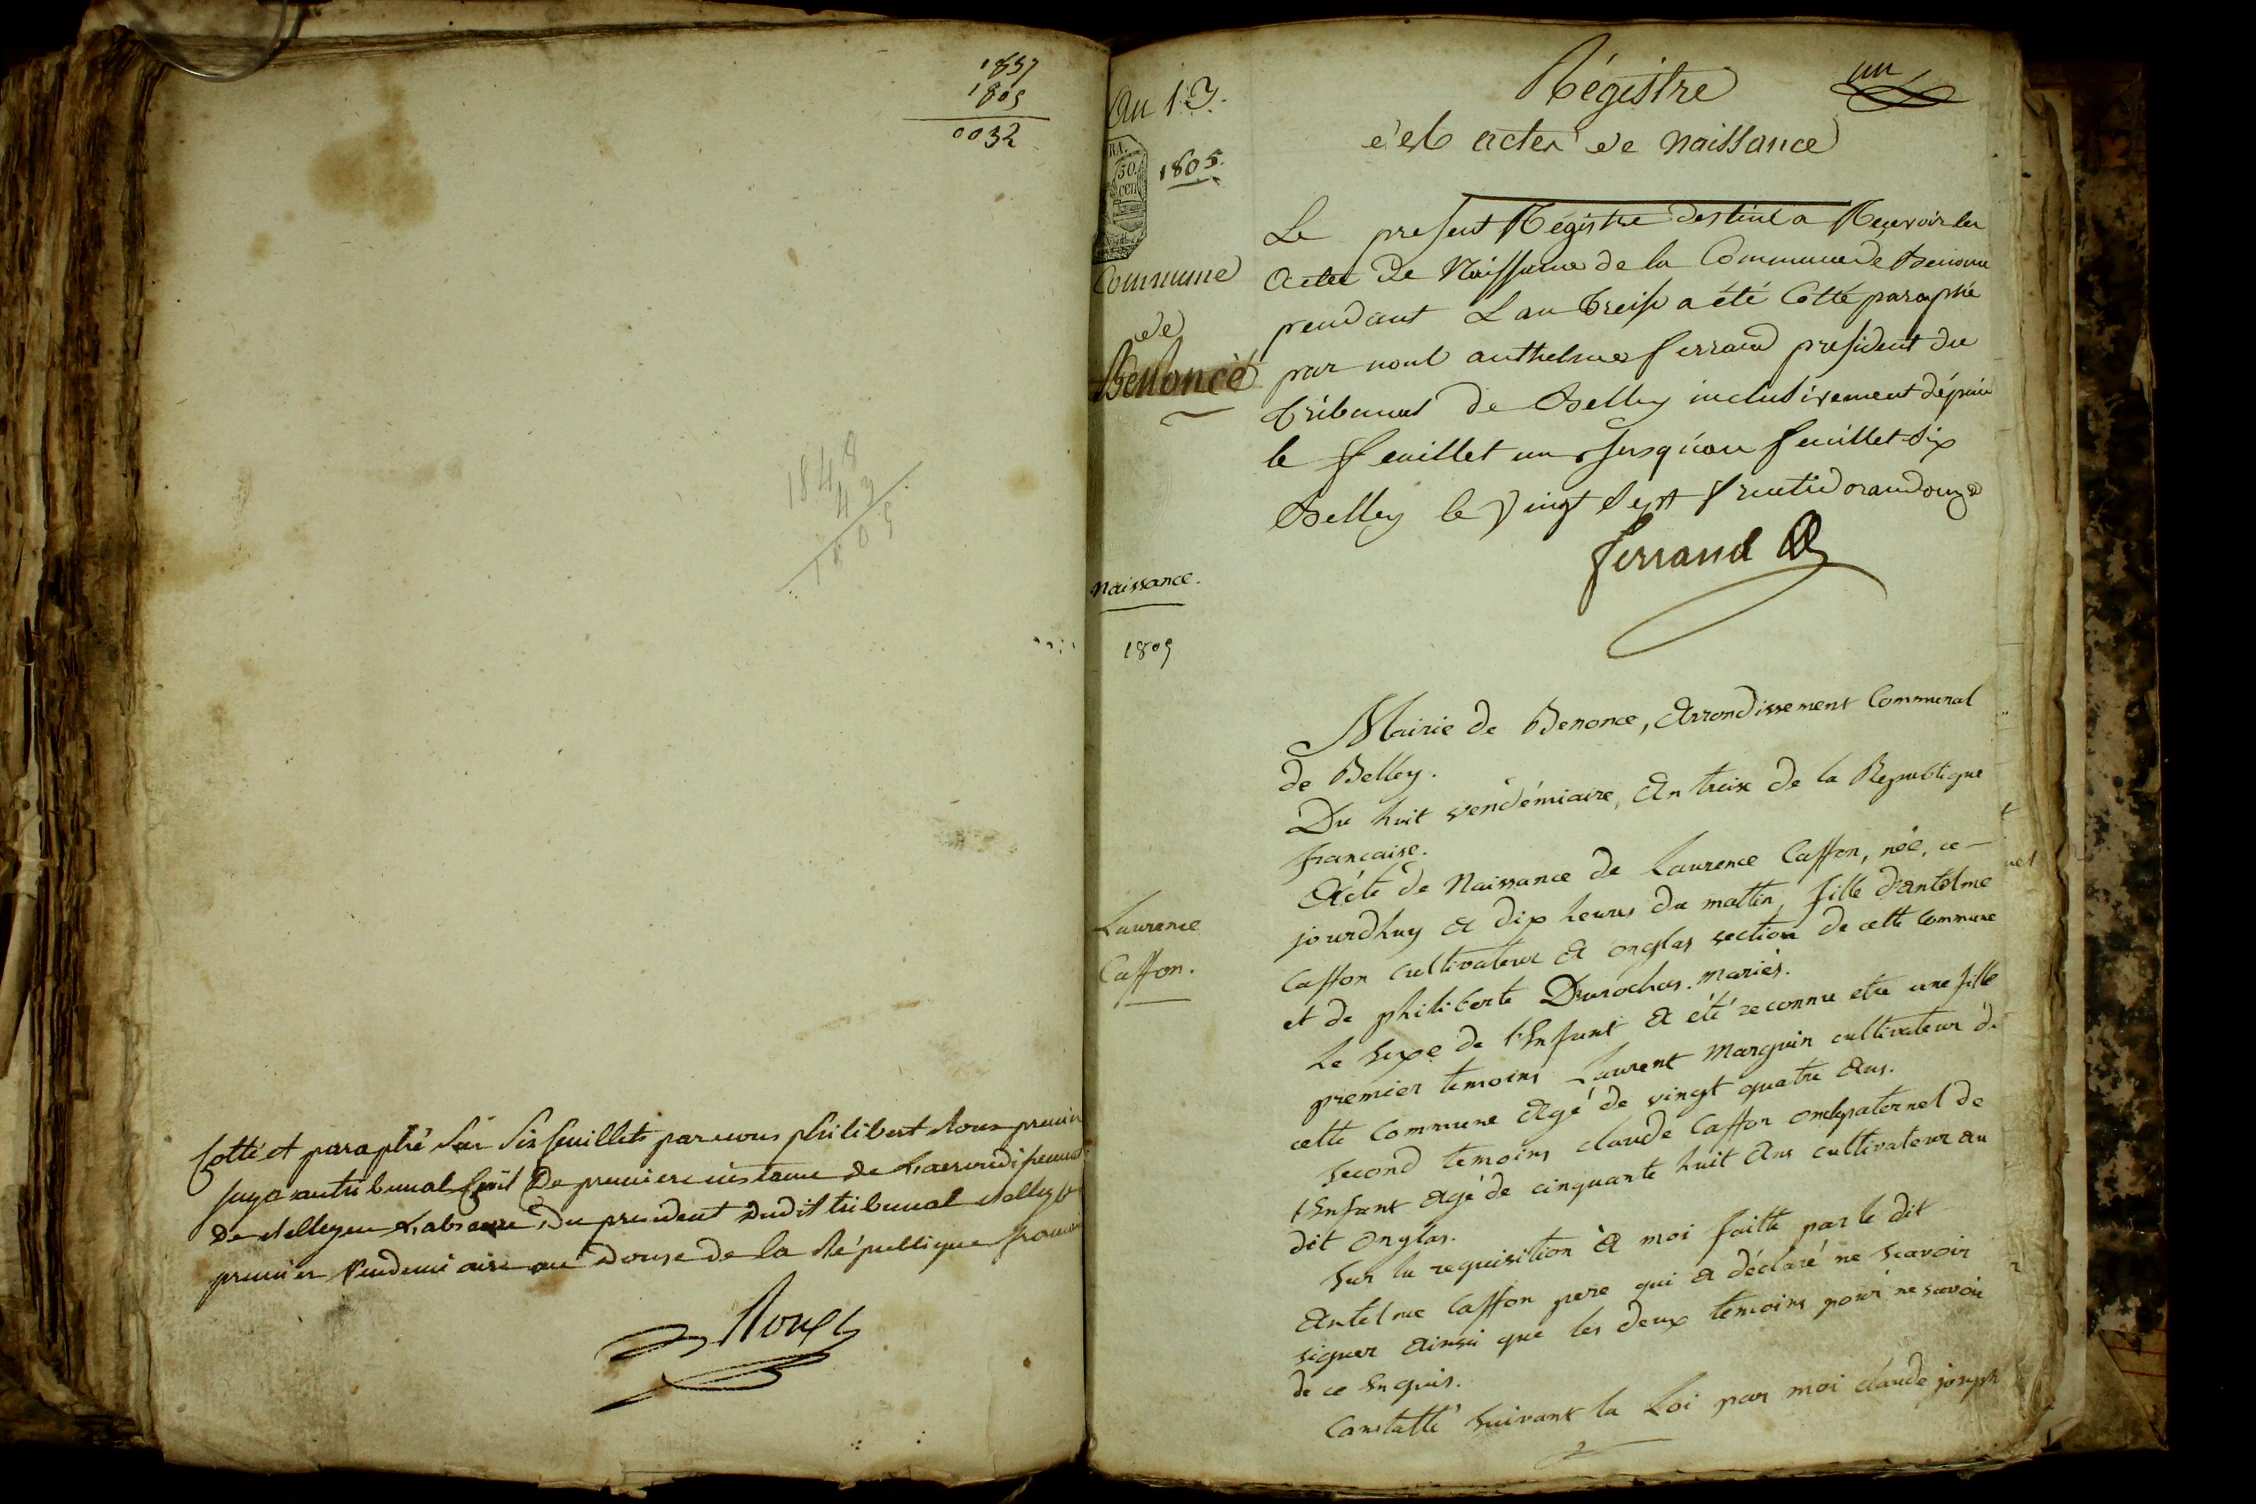 1837
1805
0032
1848
43
1805
Cotté et paraphé sur six feuillets par nous philibert Roux premier
juge au tribunal Civil De premiere instance de Larrondissement
De Belley en L'absence Du president Dudit tribunal Belley le
premier Vendemiaire an Douze de la République francaise
Roux
An 13.
RA.
50.
cen
1805.
Commune
de
Benonce
naissance.
1805
Laurence
Caffon.
un
Régistre
des actes de naissance
Le present Régistre destiné a Recevoir les
actes de Naissance de la Commune de Benonce
pendant L an treise a été Cotté paraphé
par nous anthelme ferrand president du
tribunal de Belley inclusivement dépuis
le feuillet un Jusqu'au feuillet six
Belley le Vingt Sept fructidor an douze
ferrand
Mairie de Benonce, Arrondissement Communal
de Belley.
Du huit vendémiaire, An treise de la Republique
francaise.
Acte de Naissance de Laurence Caffon, née, ce
jourdhuy a dix heures du mattin, fille d'antelme
Caffon cultivateur a onglas section de cette commune
et de philiberte Durochas. mariés.
Le sexe de l'Enfant a été reconnu etre une fille
premier temoins Laurent Marguin cultivateur de
cette commune Agé de vingt quatre Ans.
Second temoins claude Caffon oncle paternel de
l'Enfant Agé de cinquante huit Ans cultivateur au
dit onglas.
Sur la requisition à moi faitte par le dit
Antelme Caffon pere qui a déclaré ne scavoir
signer Ainsi que les deux temoins pour ne scavoir
de ce Enquis.
Constatté suivant la Loi par moi claude joseph